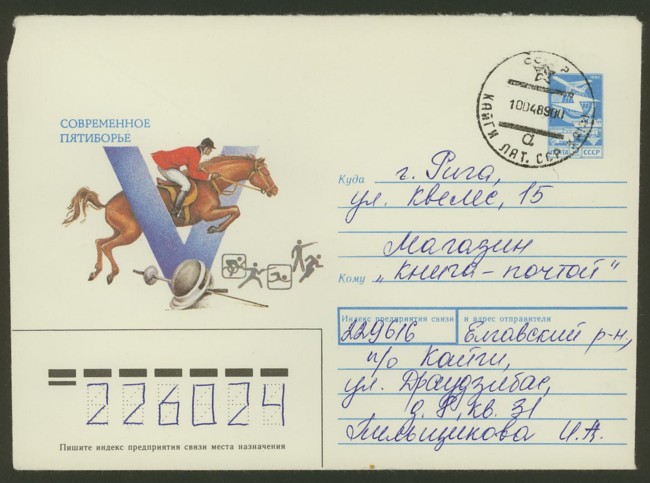 СОВРЕМЕННОЕ
ПЯТИБОРЬЕ
СССР
10048900
а
КАЙГИ ЛАТ. ССР
ПОЧТА СССР
Куда г. Рига,
ул. Квелес, 15
Магазин
Кому „Книга-почтой"
Индекс предприятия связи и адрес отправителя
229616 Елгавский р-н,
п/о Кайги,
ул. Драудзибас,
д. 8, кв. 31
Пильщикова И.А.
226024
Пишите индекс предприятия связи места назначения